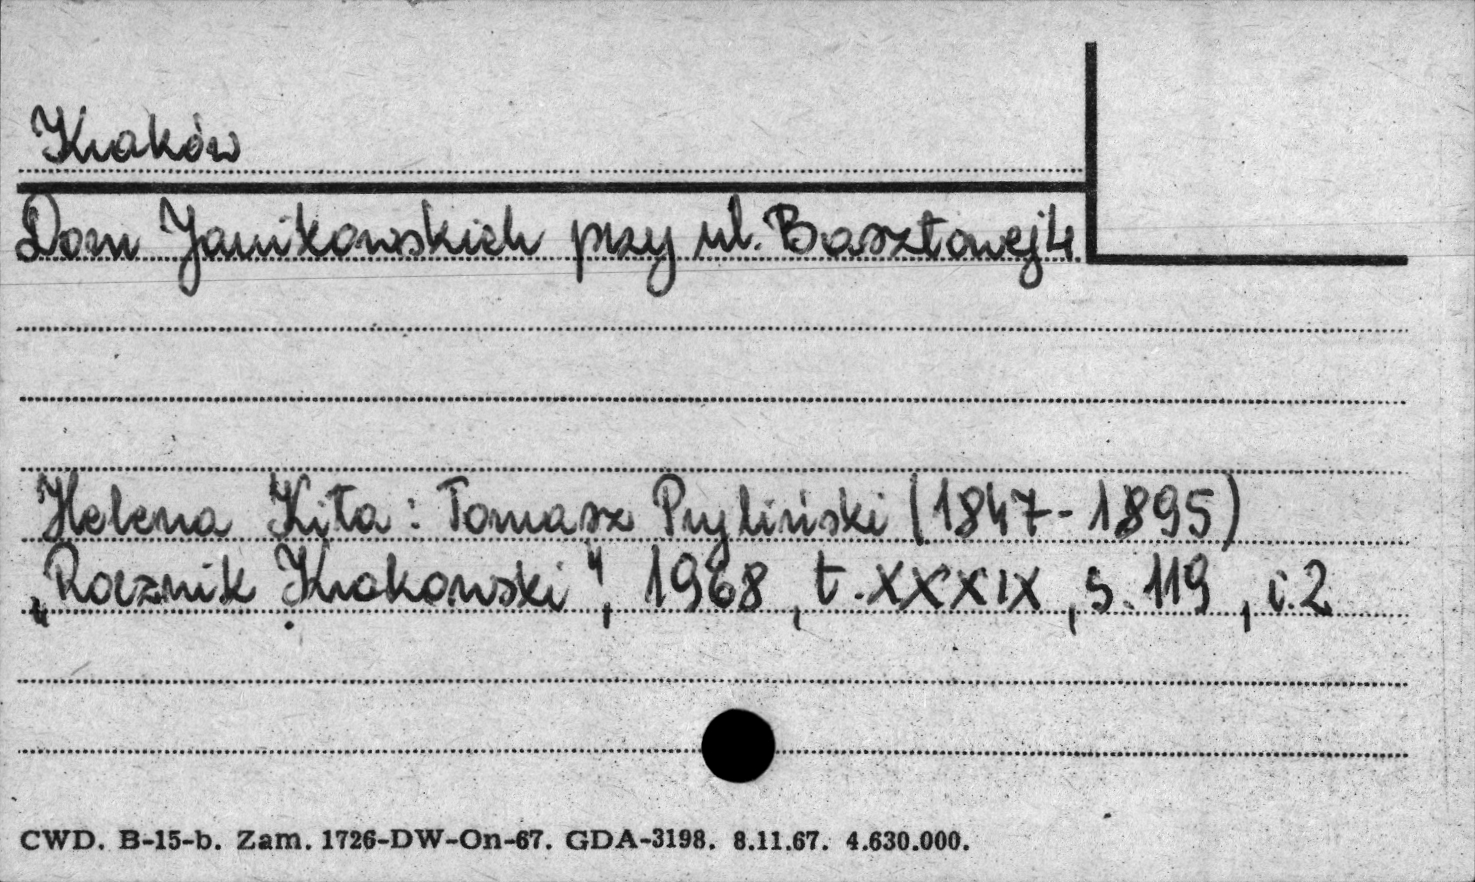 Kraków
Dom Janikowskich przy ul. Basztowej 4
Helena Kita: Tomasz Pryliński (1847-1895)
„Rocznik Krakowski", 1968, t. XXXIX, s. 119, i. 2
CWD. B-15-b. Zam. 1726-DW-On-67. GDA-3198. 8.11.67. 4.630.000.